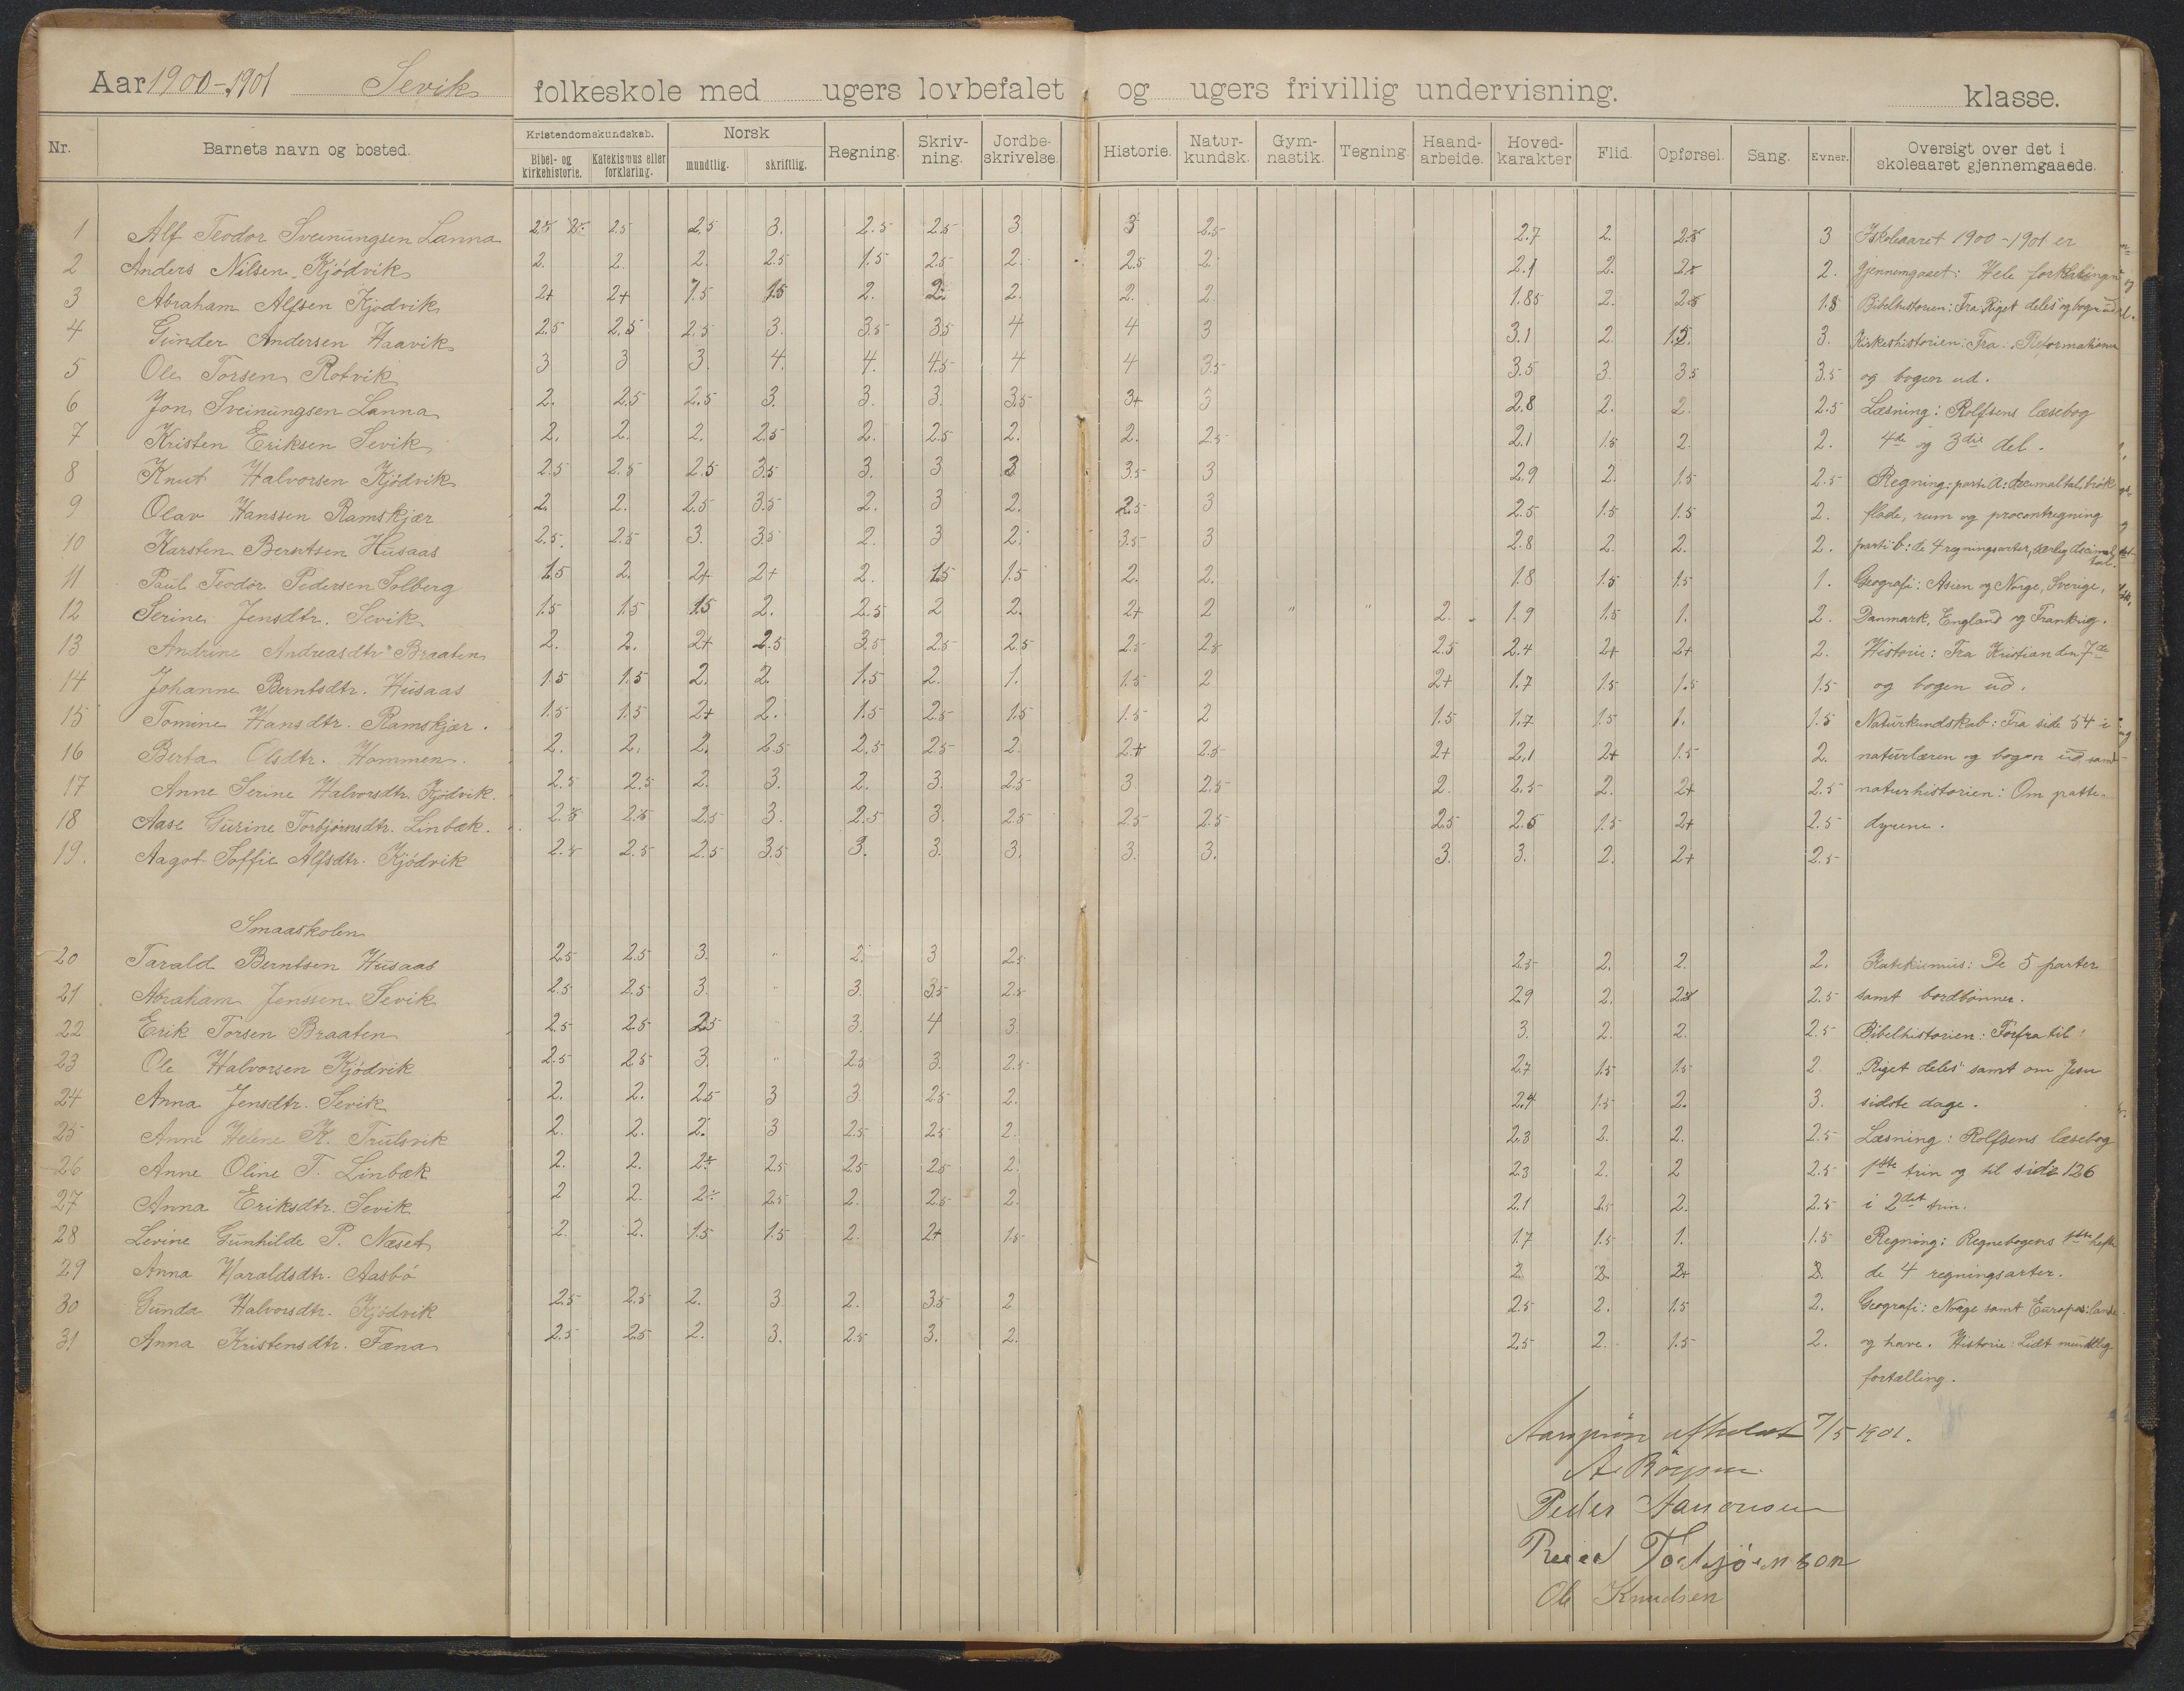 Aar 1900-1901 Sevik folkeskole med ugers lovbefalet og ugers frivillig undervisning. klasse.
Nr. Barnets navn og bosted. Kristendomskundskab. Bibel- og kirkehistorie. Katekismus eller forklaring. Norsk mundtlig. skriftlig. Regning. Skriv-ning. Jordbe-skrivelse. Historie. Natur-kundsk. Gym-nastik. Tegning. Haand-arbeide. Hoved-karakter Flid. Opførsel. Sang. Evner. Oversigt over det i skoleaaret gjennemgaaede.
1 Alf Teodor Sveinungsen Lanna 2.5 2.5 2.5 3. 2.5 2.5 3 3 2.5 2.7 2. 2.5 3 I skoleaaret 1900-1901 er
2 Anders Nilsen Kjödvik 2. 2. 2. 2.5 1.5 2.5 2. 2.5 2. 2.1 2. 2. 2. gjennemgaaet: Hele forklaringen
3 Abraham Alfsen Kjödvik 2+ 2+ 1.5 1.5 2. 2. 2. 2. 2. 1.85 2. 2.5 1.5 Bibelhistorien: Fra Riget deles og bogen ud
4 Gunder Andersen Haavik 2.5 2.5 2.5 3. 3.5 3.5 4 4 3 3.1 2. 1.5 3. Kirkehistorien: Fra Reformationen
5 Ole Torsen Rotvik 3 3 3. 4. 4. 4.5 4 4 3.5 3.5 3. 3.5 3.5 og bogen ud.
6 Jon Sveinungsen Lanna 2. 2.5 2.5 3. 3. 3. 3.5 3+ 3 2.8 2. 2. 2.5 Læsning: Rolfsens læsebog
7 Kristen Eriksen Sevik 2. 2. 2. 2.5 2. 2.5 2. 2. 2.5 2.1 1.5 2. 2. 4de og 3die del.
8 Knut Halvorsen Kjödvik 2.5 2.5 2.5 3.5 3. 3 3 3.5 3 2.9 2. 1.5 2.5 Regning: parti a: decimaltal, brök
9 Olav Hanssen Ramskjær 2. 2. 2.5 3.5 2. 3 2. 2.5 3 2.5 1.5 1.5 2. flade, rum og procentregning
10 Karsten Berntsen Husaas 2.5 2.5 3. 3.5 2. 3 2. 3.5 3 2.8 2. 2. 2. parti b: de 4 regningsarter, særlig decimaltal.
11 Paul Teodor Pedersen Solberg 1.5 2. 2+ 2+ 2. 1.5 1.5 2. 2. 1.8 1.5 1.5 1. Geografi: Asien og Norge, Sverige,
12 Serine Jensdtr. Sevik 1.5 1.5 1.5 2. 2.5 2 2. 2+ 2 " " 2. 1.9 1.5 1. 2. Danmark, England og Frankrig.
13 Andrine Andreasdtr. Braaten 2. 2. 2+ 2.5 3.5 2.5 2.5 2.5 2.5 2.5 2.4 2+ 2+ 2. Historie: Fra Kristian den 7de
14 Johanne Berntsdtr. Husaas 1.5 1.5 2. 2. 1.5 2. 1. 1.5 2 2+ 1.7 1.5 1.5 1.5 og bogen ud.
15 Tomine Hansdtr. Ramskjær. 1.5 1.5 2+ 2. 1.5 2.5 1.5 1.5 2 1.5 1.7 1.5 1. 1.5 Naturkundskab: Fra side 54 i
16 Berta Olsdtr. Hommen. 2. 2. 2. 2.5 2.5 2.5 2 2+ 2.5 2+ 2.1 2+ 1.5 2. naturlæren og bogen ud, samt
17 Anne Serine Halvorsdtr. Kjödvik. 2.5 2.5 2. 3. 2. 3. 2.5 3. 2.5 2. 2.5 2. 2+ 2.5 naturhistorien: Om patte-
18 Aase Gurine Torbjørnsdtr. Linbæk. 2.5 2.5 2.5 3. 2.5 3. 2.5 2.5 2.5 2.5 2.5 1.5 2+ 2.5 dyrene.
19. Aagot Soffie Alfsdtr. Kjödvik 2.5 2.5 2.5 3.5 3. 3. 3. 3. 3. 3. 3. 2. 2+ 2.5
Smaaskolen
20 Tarald Berntsen Husaas 2.5 2.5 3. " 2. 3 2.5 2.5 2. 2. 2. Katekismus: De 5 parter
21 Abraham Jenssen Sevik 2.5 2.5 3. " 3. 3.5 2.5 2.9 2. 2.5 samt bordbønner.
22 Erik Torsen Braaten 2.5 2.5 2.5 3. 4 3. 3. 2. 2. 2.5 Bibelhistorien: Forfra til
23 Ole Halvorsen Kjödvik 2.5 2.5 3. " 2.5 3. 2.5 2.7 1.5 1.5 2 "Riget deles" samt om Jesu
24 Anna Jensdtr. Sevik 2. 2. 2.5 3 3. 2.5 2. 2.4 1.5 2. 3. sidste dage.
25 Anne Helene K. Trulsvik 2. 2. 2. 3 2.5 2.5 2. 2.3 2. 2. 2.5 Læsning: Rolfsens læsebog
26 Anne Oline T. Linbæk 2. 2. 2+ 2.5 2.5 2.5 2. 2.3 2. 2 2.5 1ste trin og til side 126
27 Anna Eriksdtr. Sevik 2 2. 2÷ 2.5 2. 2.5 2. 2.1 2. 2.5 i 2det trin.
28 Levine Gunhilde P. Næset 2. 2. 1.5 1.5 2. 2+ 1.5 1.7 1.5 1. 1.5 Regning: Regnebogens 1ste hefte
29 Anna Haraldsdtr. Aasbö 2. 2. 2+ 2. de 4 regningsarter.
30 Gunda Halvorsdtr. Kjödvik 2.5 2.5 2. 3. 2. 3.5 2 2.5 2. 1.5 2. Geografi: Norge samt Europas lande
31 Anna Kristensdtr. Fæna 2.5 2.5 2. 3. 2.5 3. 2. 2.5 2. 1.5 2. og have. Historie: Lidt mundtlig
fortælling.
afholdt 7/5 1901.
Peder Aanonsen
Torbjörnson
Ole Knudsen